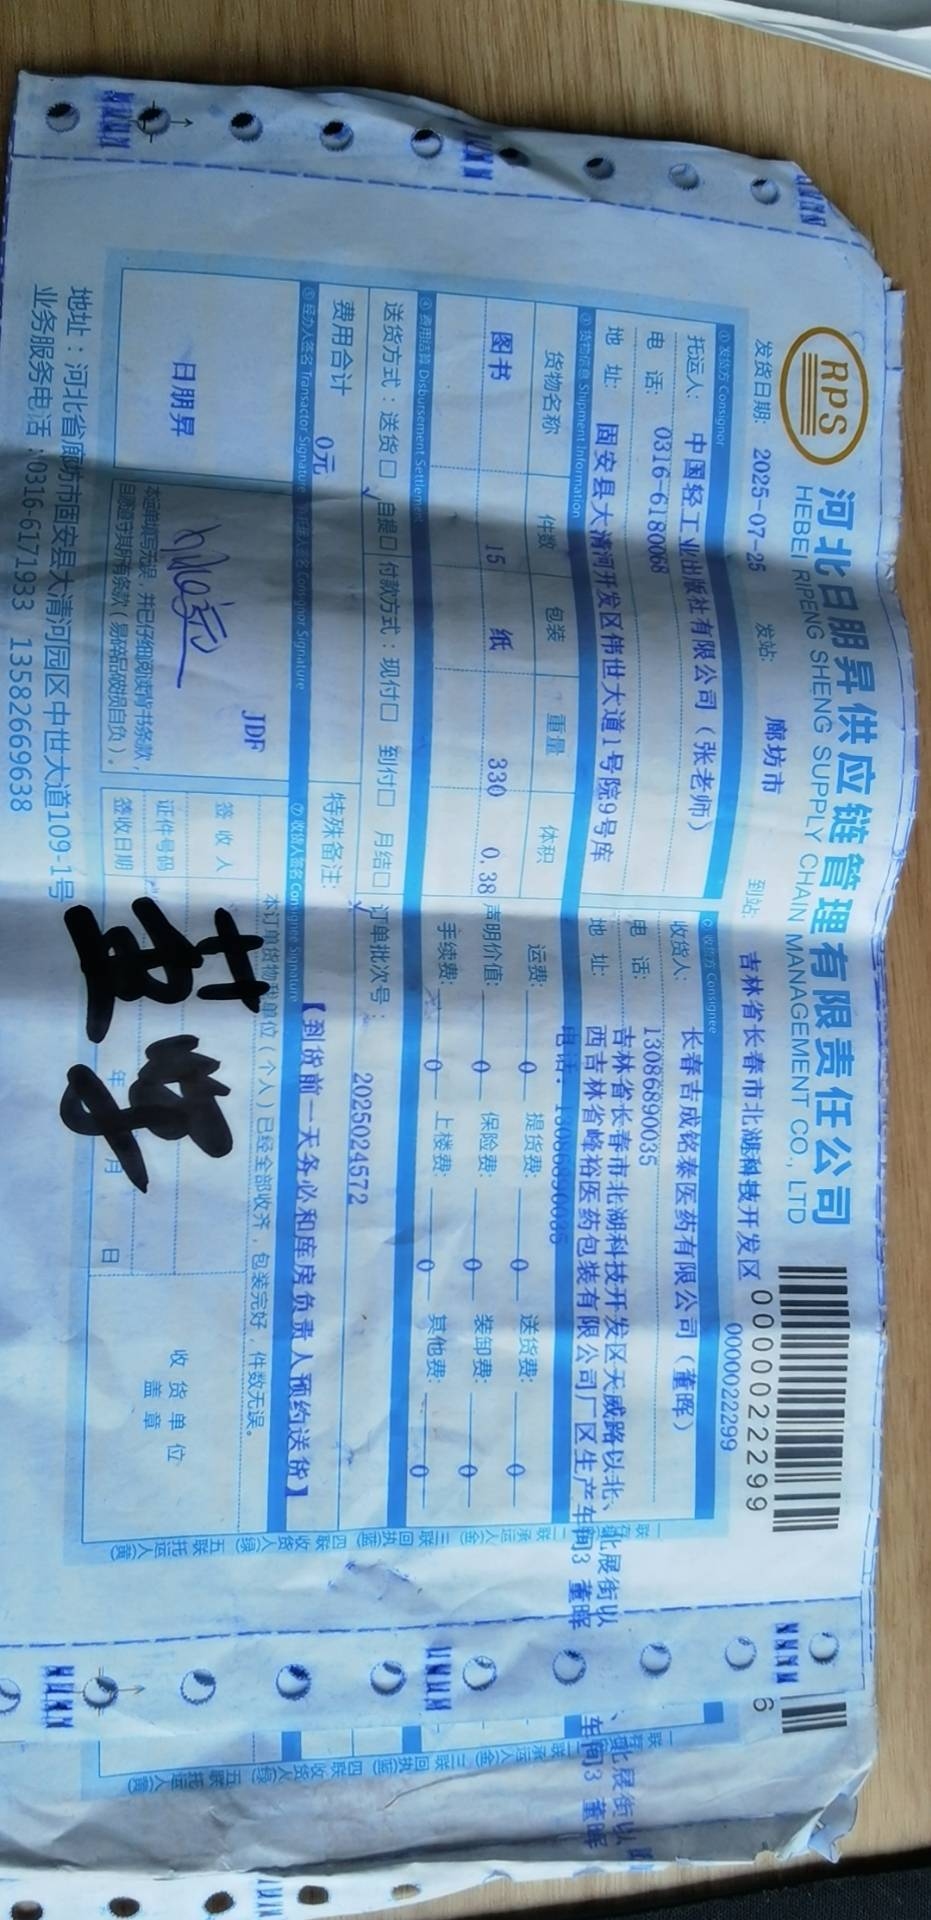 RPS
河北日朋昇供应链管理有限责任公司
HEBEI RIPENG SHENG SUPPLY CHAIN MANAGEMENT CO., LTD
0000022299
0000022299
发货日期: 2025-07-25 发站: 廊坊市 到站: 吉林省长春市北湖科技开发区
① 发货方 Consignor
托运人: 中国轻工业出版社有限公司（张老师）
电 话: 0316-6180068
地 址: 固安县大清河开发区伟世大道1号院9号库
收货方 Consignee
收货人: 长春吉成铭泰医药有限公司（董晖）
电 话: 13086890035
地 址: 吉林省长春市北湖科技开发区天威路以北、北展街以
西吉林省峰裕医药包装有限公司厂区生产车间3 董晖
电话: 13086890035
③ 货物信息 Shipment Information
货物名称 件数 包装 重量 体积
图书 15 纸 330 0.38
运费: 0 提货费: 0 送货费: 0
声明价值: 0 保险费: 0 装卸费: 0
手续费: 0 上楼费: 0 其他费: 0
④ 费用结算 Disbursement Settlement
送货方式：送货□ 自提□ 付款方式：现付□ 到付□ 月结□
订单批次号： 2025024572
费用合计 0元
特殊备注: 【到货前一天务必和库房负责人预约送货】
⑤ 经办人签名 Transactor Signature
日朋昇
托运人签名 Consignor Signature
JDF
本运单填写无误，并已仔细阅读背书条款，
自愿遵守其所有条款（易碎品破损自负）。
⑦ 收货人签名 Consignee Signature
本订单货物我单位（个人）已经全部收齐，包装完好，件数无误。
签 收 人
证件号码
签收日期 年 月 日
收 货 单 位
盖 章
地址：河北省廊坊市固安县大清河园区中世大道109-1号
业务服务电话:0316-6171933 13582669638
一联 存根 二联 承运人(金) 三联 回执(蓝) 四联 收货人(绿) 五联 托运人(黄)
6
、北展街以
车间3 董晖